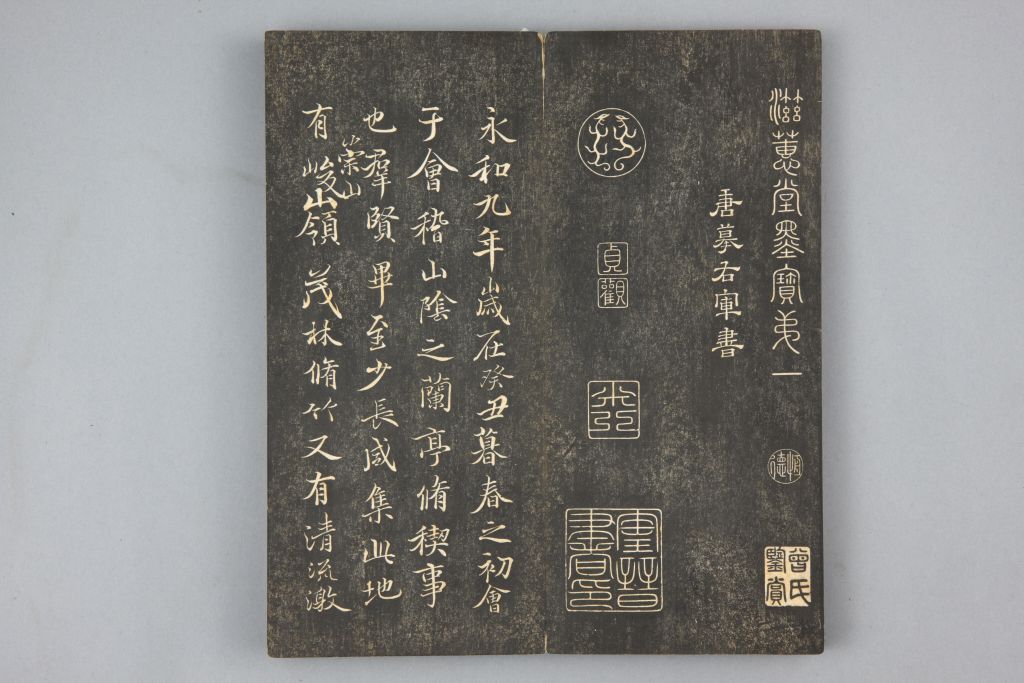 滋蕙堂墨寶弟一
恒德
曾氏鑒賞
唐摹右軍書
貞觀
永和九年歲在癸丑暮春之初會
于會稽山陰之蘭亭脩稧事
也羣賢畢至少長咸集此地
有崇山峻領茂林脩竹又有清流激